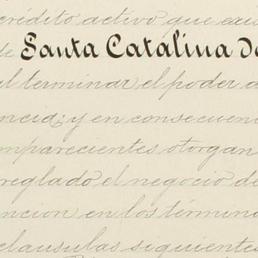 crédito activo que exis
de Santa Catalina de
al terminar el poder a
encia; y en consecuen
omparecientes otorgan
reglado el negocio de
encion en los términ
clausulas siguientes